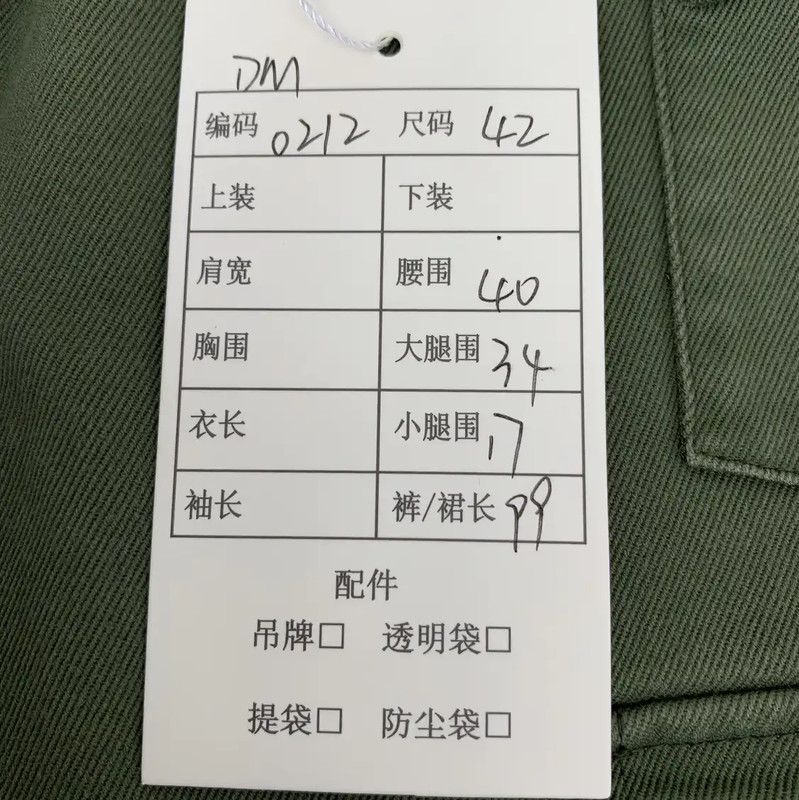 DM
编码 0212 尺码 42
上装 下装
肩宽 腰围 40
胸围 大腿围 34
衣长 小腿围 17
袖长 裤/裙长 99
配件
吊牌□ 透明袋□
提袋□ 防尘袋□